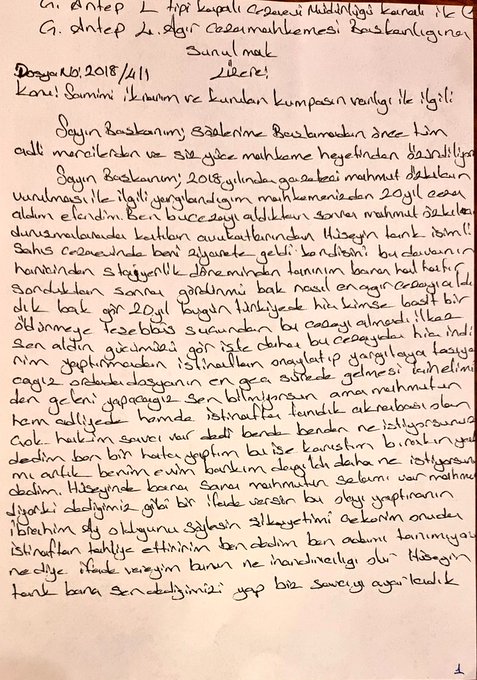 G. Antep L tipi kapalı Cezaevi Müdürlüğü kanalı ile
G. Antep 4. Ağır Ceza mahkemesi Başkanlığına
sunulmak
Dosya No: 2018/411 üzere
Konu: Samimi ikrarım ve kurulan kumpasın varlığı ile ilgili
Sayın Başkanım; sözlerime Başlamadan önce tüm
adli mercilerden ve siz yüce mahkeme heyetinden özür diliyor
Sayın Başkanım; 2018 yılında gazeteci mahmut
vurulması ile ilgili yargılandığım mahkemenizden 20 yıl ceza
aldım efendim. Ben bu cezayı aldıktan sonra mahmut
duruşmalarında katılan avukatlarından Hüseyin tarık isimli
Şahıs cezaevinde beni ziyarete geldi kendisini bu davanın
haricinden stajyerlik döneminden tanırım bana hal hatır
sorduktan sonra gördünmü bak nasıl en ağır cezayı aldır
dık bak gör 20 yıl bugün türkiyede hiç kimse basit bir
öldürmeye teşebbüs sucundan bu cezayı almadı ilkez
sen aldın gücümüzü gör işte daha bu cezayıda hiç indi
rim yaptırmadan istinaftan onaylatıp yargılaya taşıya
cağız ordanda dosyanın en geç sürede gelmesi icin elimiz
den geleni yapacağız sen bilmiyorsun ama mahmutun
hem adliyede hemde istinafta tanıdık akrabası olan
çok hakim savcı var dedi bende benden ne istiyorsunuz
dedim ben bir hata yaptım bu işe karıştım bırakın ya
mı artık benim evim barkım dağıldı daha ne istiyorsun
dedim. Hüseyinde bana sana mahmutun selamı var mahmut
diyorki dediğimiz gibi bir ifade versin bu olayı yaptıranın
ibrahim Ay olduğunu söylesin şikayetimi çekerim onuda
istinaftan tahliye ettiririm ben dedim ben adamı tanımıyorum
ne diye ifade vereyim bunun ne inandırıcılığı olur Hüseyin
tarık bana sen dediğimizi yap biz savcıyı ayarladık
1